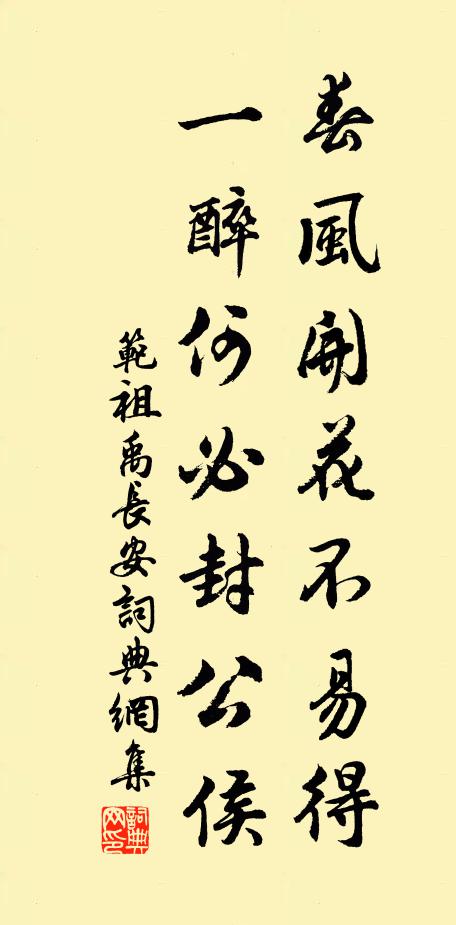 春風開花不易得
一醉何必封公侯
範祖禹長安詞典網集
詞典網印